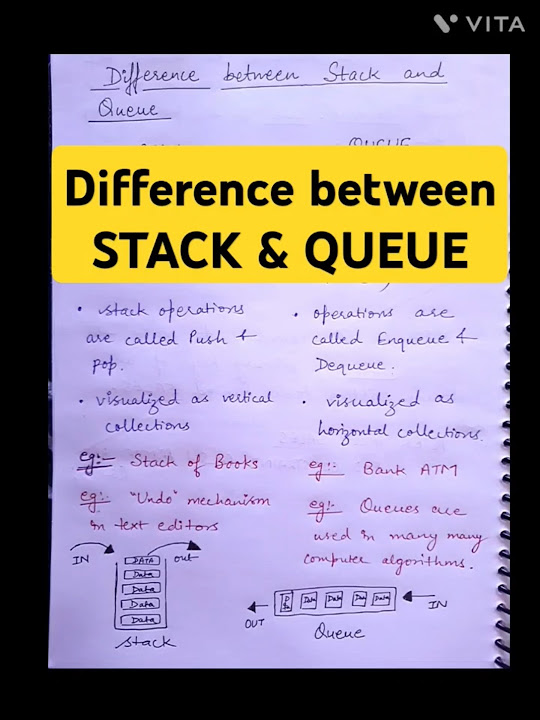 VITA
Difference between Stack and
Queue
QUEUE
Difference between
STACK & QUEUE
• stack operations
are called Push &
Pop.
• visualized as vertical
collections
eg:- Stack of Books
eg:- "Undo" mechanism
in text editors
• operations are
called Enqueue &
Dequeue.
• visualized as
horizontal collections.
eg:- Bank ATM
eg:- Queues are
used in many many
computer algorithms.
IN out
DATA
Data
Data
Data
Data
stack
Data Data Data Data
OUT IN
Queue